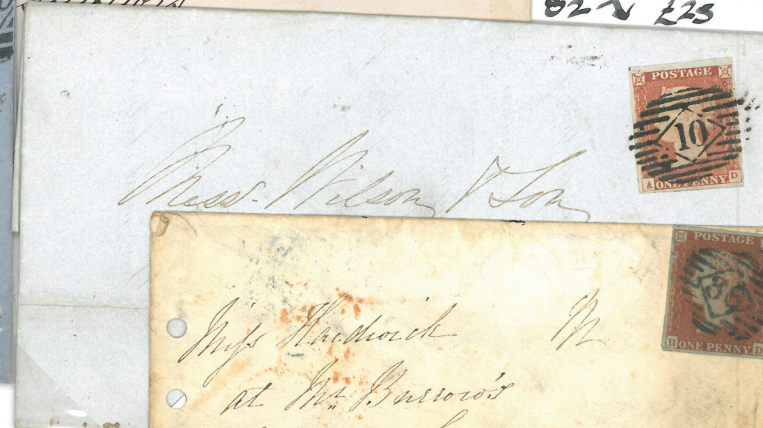 82 £25
POSTAGE
10
A ONE PENNY D
Messrs. Wilson & Son
POSTAGE
B ONE PENNY D
Miss Hardwick M
at Mr. Burrow's